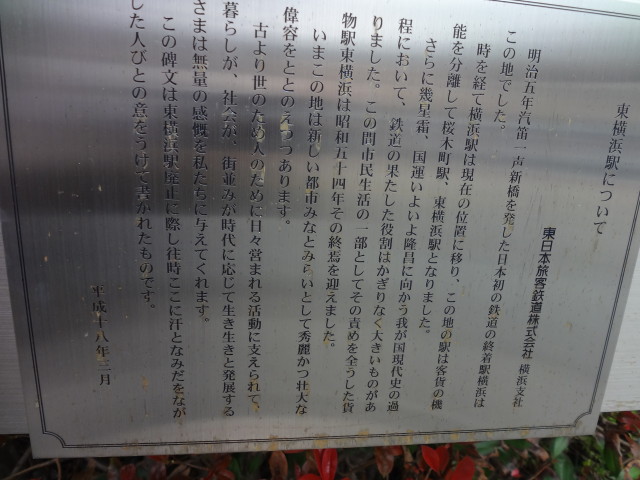 東横浜駅について
東日本旅客鉄道株式会社 横浜支社
明治五年汽笛一声新橋を発した日本初の鉄道の終着駅横浜は
この地でした。
時を経て横浜駅は現在の位置に移り、この地の駅は客貨の機
能を分離して桜木町駅、東横浜駅となりました。
さらに幾星霜、国運いよいよ隆昌に向かう我が国現代史の過
程において、鉄道の果たした役割はかぎりなく大きいものがあ
りました。この間市民生活の一部としてその責めを全うした貨
物駅東横浜は昭和五十四年その終焉を迎えました。
いまこの地は新しい都市みなとみらいとして秀麗かつ壮大な
偉容をととのえつつあります。
古より世のため人のために日々営まれる活動に支えられて、
暮らしが、社会が、街並みが時代に応じて生き生きと発展する
さまは無量の感慨を私たちに与えてくれます。
この碑文は東横浜駅廃止に際し往時ここに汗となみだをなが
した人びとの意をうけて書かれたものです。
平成十八年三月